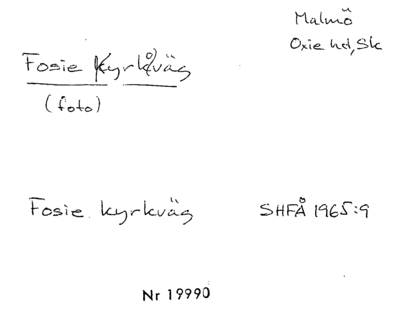 Malmö
Oxie hd, Sk
Fosie Kyrkväg
(foto)
Fosie kyrkväg SHFÅ 1965:9
Nr 19990